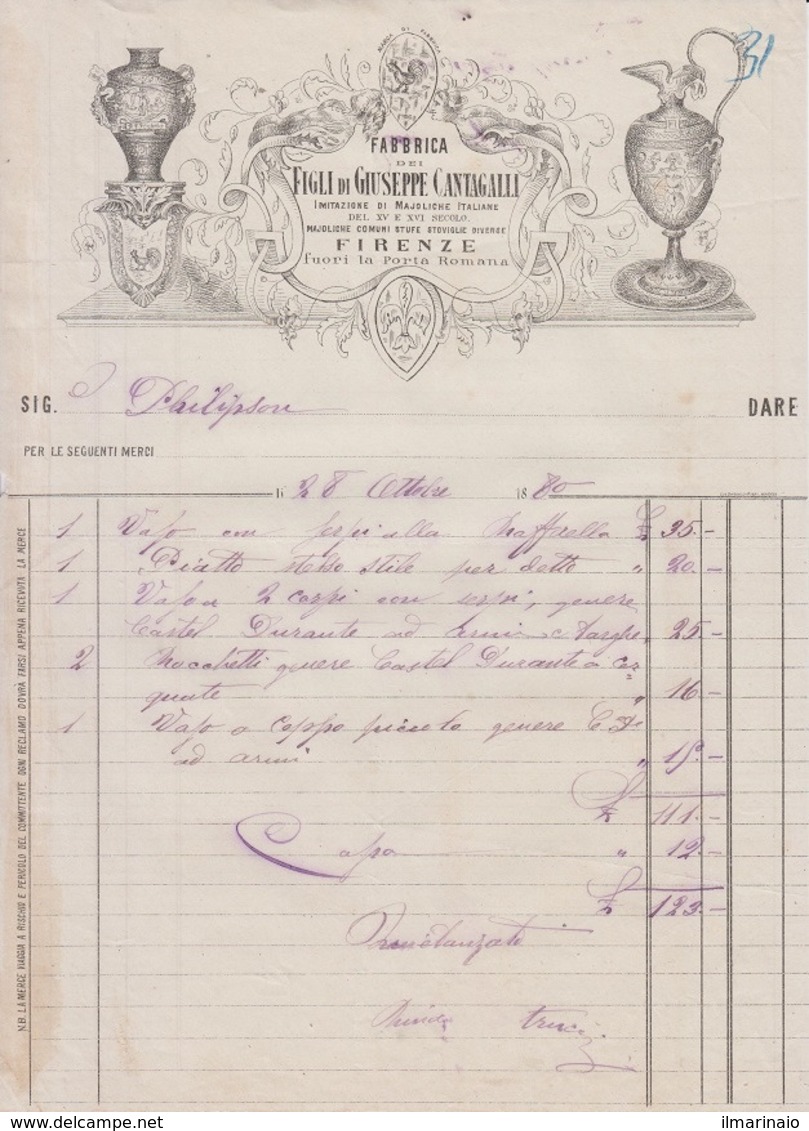 31
MARCA DI FABBRICA
FABBRICA
DEI
FIGLI DI GIUSEPPE CANTAGALLI
IMITAZIONE DI MAJOLICHE ITALIANE
DEL XV E XVI SECOLO.
MAJOLICHE COMUNI STUFE STOVIGLIE DIVERSE
FIRENZE
fuori la Porta Romana
SIG. Philipson DARE
PER LE SEGUENTI MERCI
li 28 Ottobre 1880
1 Vaso con serpi alla Raffaella £ 35.-
1 Piatto stesso stile per detto " 20.-
1 Vaso a 2 corpi con serpi, genere
Castel Durante ad armi e targhe, 25.-
2 Rocchetti genere Castel Durante a cer=
quate " 16.-
1 Vaso a coppo piccolo genere C. De
ad armi " 15.-
£ 111.-
Cassa " 12.-
£ 123.-
N.B. LA MERCE VIAGGIA A RISCHIO E PERICOLO DEL COMMITTENTE OGNI RECLAMO DOVRÀ FARSI APPENA RICEVUTA LA MERCE
delcampe.net
ilmarinaio